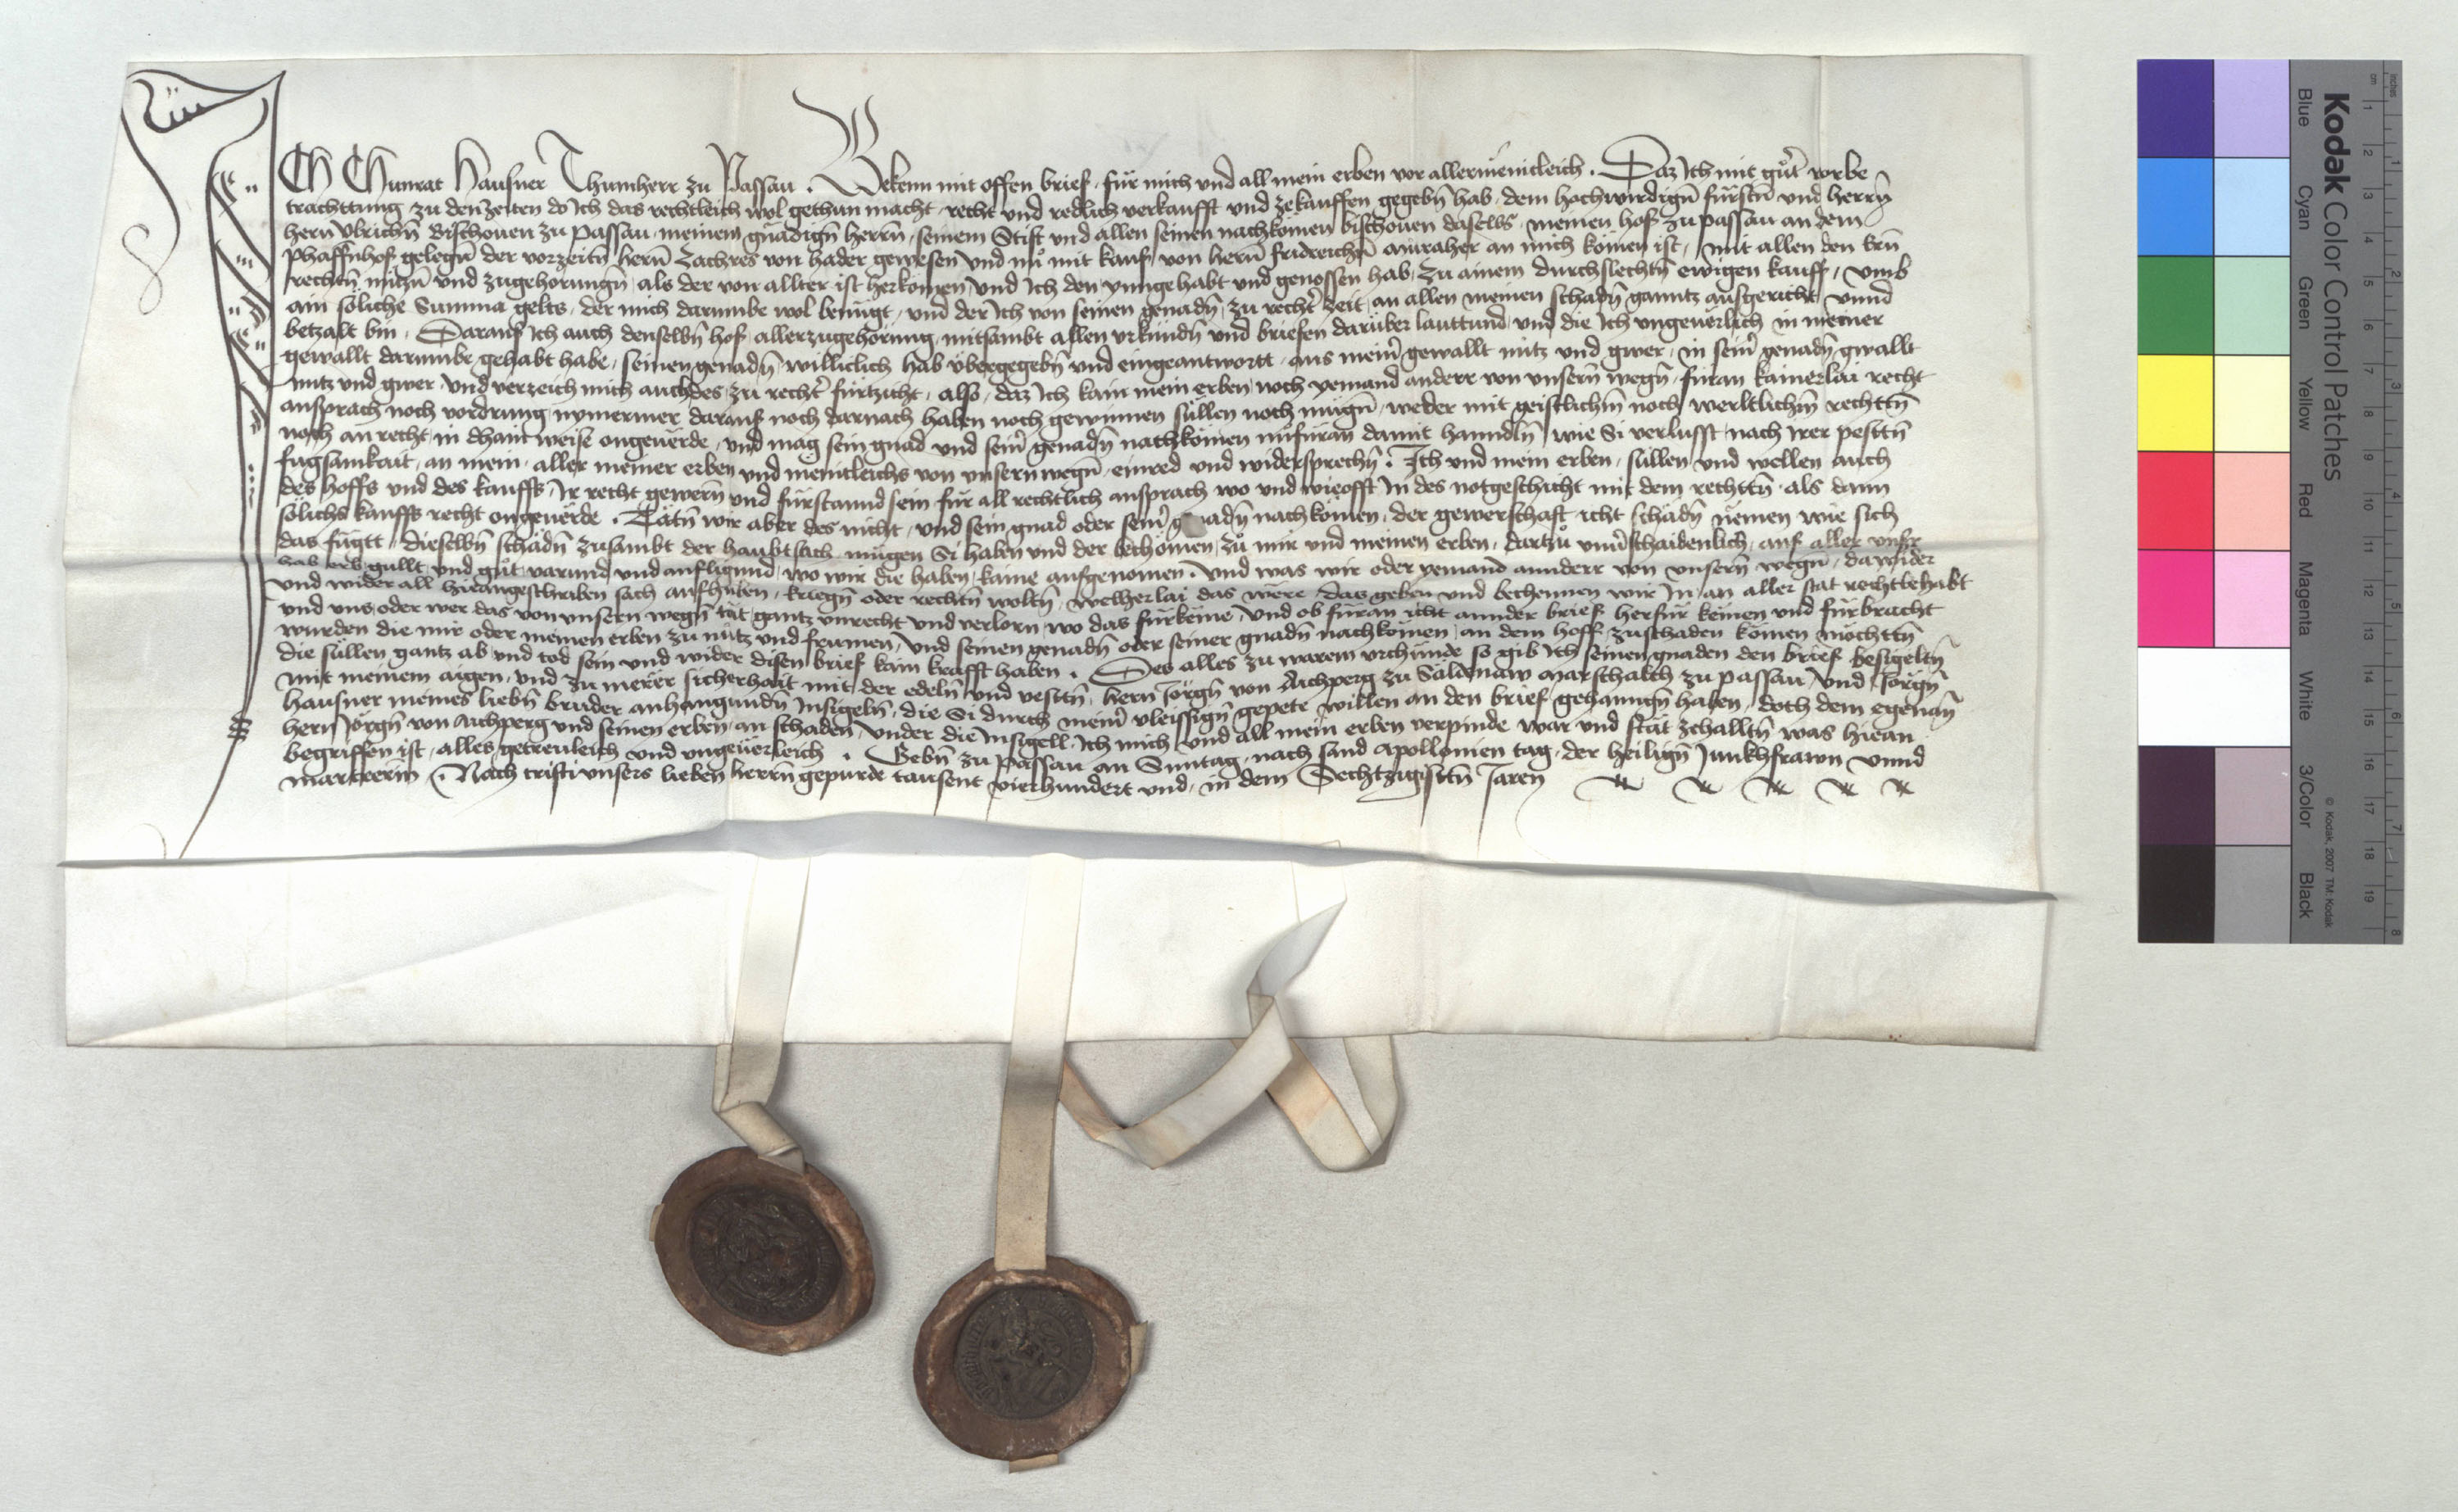 ICh Chunrat Hausner Thumherr zu Passau . Bekenn mit offen brief, für mich und all mein erben vor allermenicleich . Daz Ich mit guter vorbe
trachttung zu den Zeiten do Ich das rechtleich wol gethun macht, recht und redlich verkaufft und zekauffen gegebn̄ hab, dem hochwirdign̄ fürstn̄ und herrn̄
hern̄ Vlrichn̄ Bischouen zu Passau, meinem gnädign̄ herrn̄, seinem Stift und allen seinen nachkomen bischouen daselbs, meinen hof zu passau an dem
Phaffnhof gelegn̄ der vorzeitn̄ hern̄ Zachres von hader gewesen̄ und nu mit kauf von hern̄ fridreichn̄ anraher an mich komen ist, mit allen den Ern̄
rechtn̄ nutzn̄ und zugehorungn̄ als der von allter ist herkomen, Und Ich den ynnge habt und genossen hab, zu ainem durchslechtn̄ ewigen kauff, Vmb
ain soliche Summa gelts, der mich darumbe wol benügt, und der Ich von seinen genadn̄, zu rechter zeit, an allen meinen schadn̄ ganntz ausgericht vnnd
betzalt bin . Darauf Ich auch denselbn̄ hof, allerzugehörung, mitsambt allen vrkundn̄ und briefen darüber lauttund, und die Ich vngeuerlich in meiner
gewallt darumbe gehabt habe, seinen genadn̄ williclich hab übergegebn̄ und eingeantwortt, aus meiner gewallt nutz und gwer, in seiner genadn̄ gwallt
nutz und gwer, Und verzeich mich auch des, zu rechter fürtzicht, also, daz Ich kain mein erben noch yemand anderr von vnsern̄ wegn̄, füran kainerlai recht
ansprach noch vordrung nymermer darauf noch darnach haben noch gewinnen süllen noch mügn̄, weder mit geistlichn̄ noch werltlichn̄ rechttn̄
noch an recht, in dhain weise ongeuerde, und mag sein gnad und seiner genadn̄ nachkomen nufüran damit hanndln̄ wie Si verlusst, nach irer pesttn̄
fugsamkait, an mein, aller meiner erben und menicleichs von vnsern wegn̄, einred und widersprechn̄ . Ich und mein erben, süllen und wellen auch
des hoffs und des kauffs, Ir recht gewern̄ und fürstannd sein für all rechtlich ansprach wo und wieofft In des notgeschicht mit dem rechttn̄, als dann
solichs kauffs recht ongeuerde . Tätn̄ wir aber des nicht, und sein gnad oder seiner gnadn̄ nachkomen, der gewerschaft icht schadn̄ nemen wie sich
das fügtt, dieselbn̄ schadn̄ zusambt der haubtsach mügen Si haben und der bechomen, zu mir und meinen erben, dartzu vnuerschaidenlich, auf aller vnser
hab erb gullt, und gut, varund und aufligund, wo wir die haben, kaine ausgenomen . Und was wir oder yemand annderr von vnsern̄ wegn̄, dawider
und wider all hieangeschriben sach aufhüben, kriegn̄ oder rechtn̄ woltn̄, welherlai das were, das geben und bechennen wir In an aller stat rechtbehabt
und vns oder wer das von vnsern wegn̄ tät, gantz vnrecht und verlorn, wo das fürkeme, Und ob füran icht annder brief herfür kemen und fürbracht
wurden die mir oder meinen erben zu nutz und frumen, und seinen genadn̄ oder seiner gnadn̄ nachkomen, an dem hoff, zuschaden komen möchttn̄
die süllen gantz ab und tod sein und wider disen brief kain krafft haben . Des alles zu warem vrchunde so gib Ich seinen gnaden den brief besigeltn̄
mit meinem aigen, und zu merer sicherhait mit der edeln̄ und vestn̄, hern̄ Jörgn̄ von Aichperg zu Säldnaw Marschalch zu passau, Und Jörgn̄
hausner meines liebn̄ bruder anhangundn̄ Insigeln̄, die Si durch meiner vleissign̄ gepete willen an den brief gehanngn̄ haben, doch dem egenan̄
hern Jörgn̄ von Aichperg und seinen erben, an schaden, Under die Insigell, Ich mich und all mein erben verpinde war und stät zehalltn̄ was hiean
begriffen ist, alles getreuleich und ungeuerleich . Gebn̄ zu passau an Sunntag, nach sand Apollonien tag, der heilign̄ Junkhfrawn vnnd
martrerin, Nach cristi vnsers lieben herrn̄ gepurde tausent vierhundert und, in dem Sechtzigisttn̄ Jaren
Kodak Color Control Patches
Blue Cyan Green Yellow Red Magenta White 3/Color Black
© Kodak, 2007 TM: Kodak
cm 1 2 3 4 5 6 7 8 9 10 11 12 13 14 15 16 17 18 19
inches 1 2 3 4 5 6 7 8